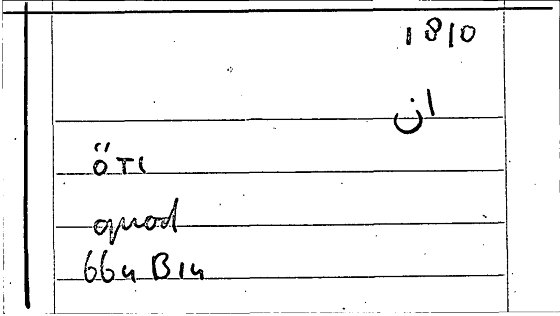 1810
ان
ὅτι
quod
664 B14